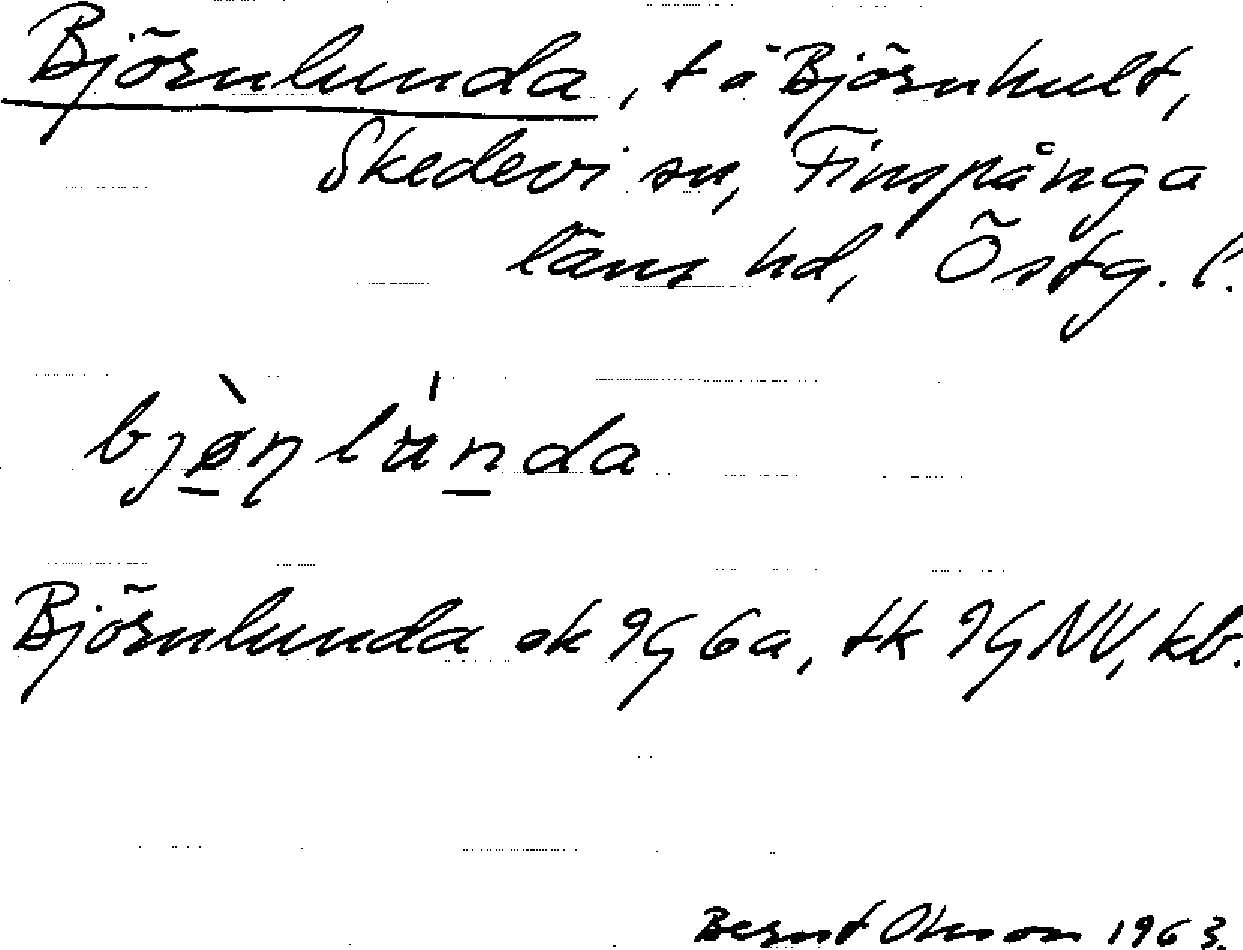 Björnlunda, t å Björnhult,
Skedevi sn, Finspånga
läns hd, Östg. l.
bjø̀ṇlúnda
Björnlunda ek 9G 6a, tk 9G NV, kb.
Bernt Olsson 1963.